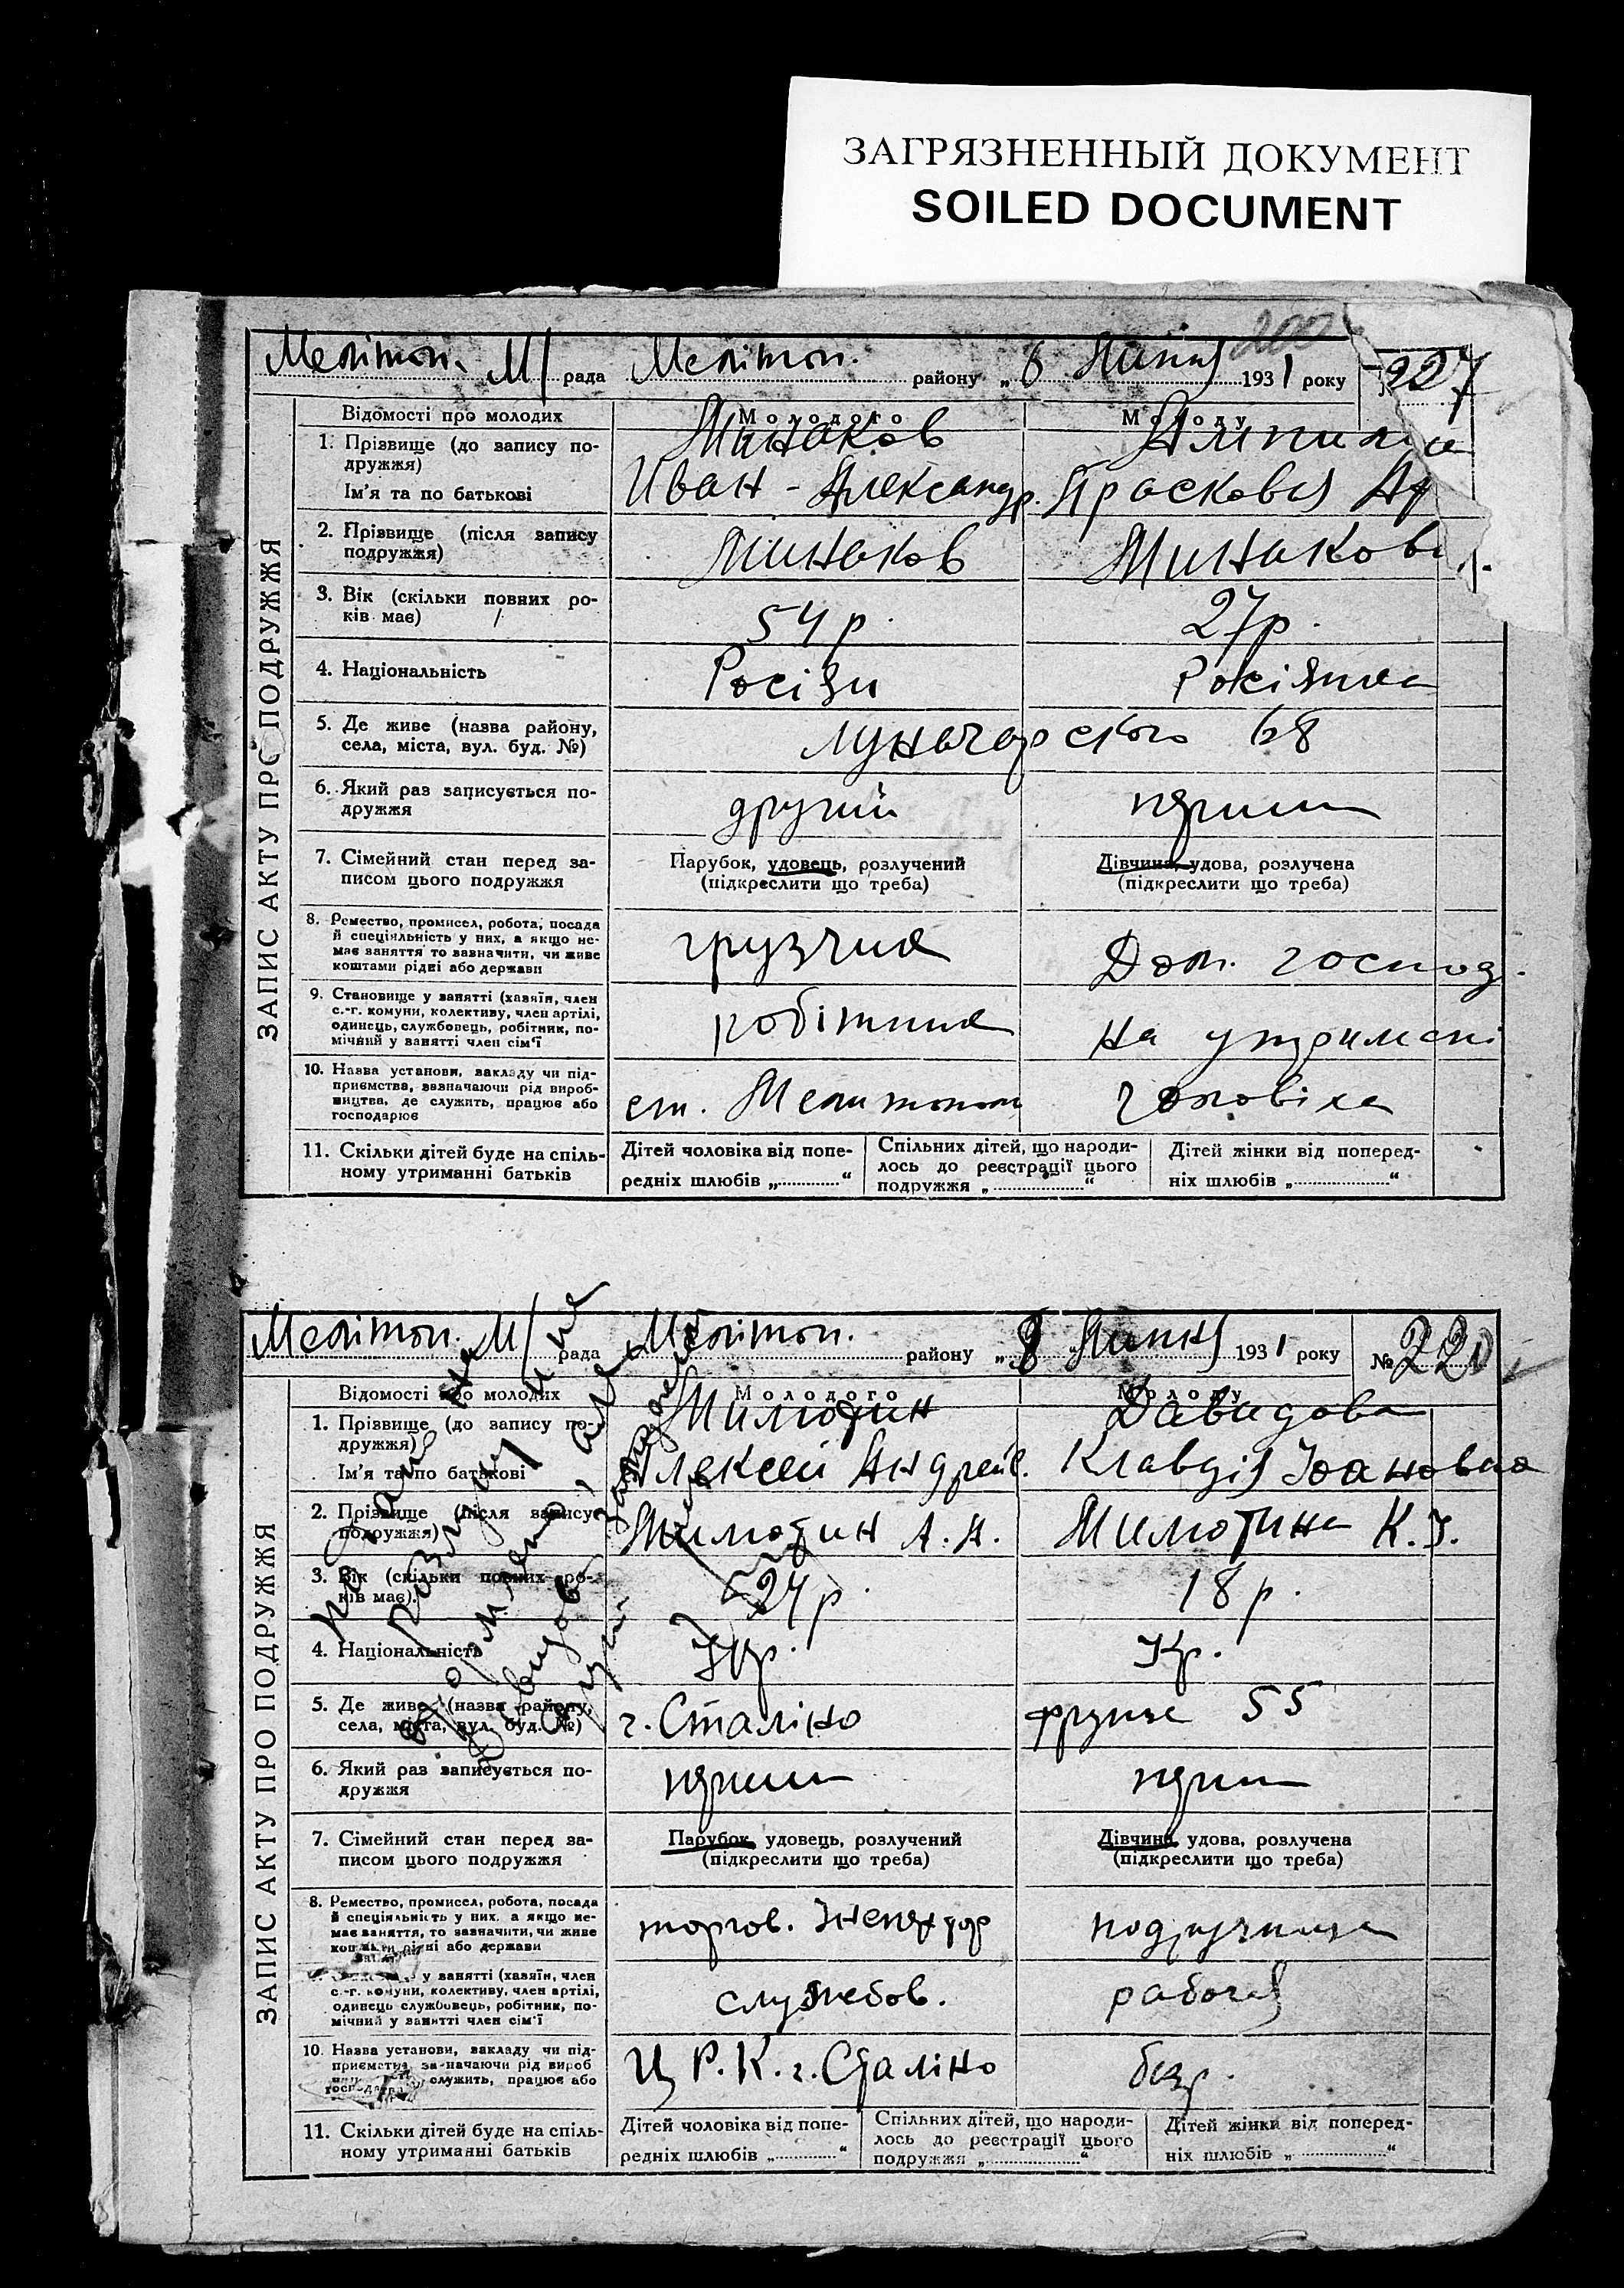 ЗАГРЯЗНЕННЫЙ ДОКУМЕНТ
SOILED DOCUMENT
200
Мелітоп. М/ рада Мелітоп. району „8 1931 року № 227
ЗАПИС АКТУ ПРО ПОДРУЖЖЯ
Відомості про молодих Молодого Молоду
1. Прізвище (до запису по-
дружжя) Минаков
Ім'я та по батькові Иван - Александр. Прасковья
2. Прізвище (після запису
подружжя) Минаков Минакова
3. Вік (скільки повних ро-
ків має) 54 р. 27 р.
4. Національність
5. Де живе (назва району,
села, міста, вул. буд. №) Луначарского 68
6. Який раз записується по-
дружжя другий
7. Сімейний стан перед за-
писом цього подружжя
Парубок, удовець, розлучений
(підкреслити що треба)
Дівчина, удова, розлучена
(підкреслити що треба)
8. Ремество, промисел, робота, посада
й спеціяльність у них, а якщо не-
має заняття то зазначити, чи живе
коштами рідні або держави
грузчик Дом. господ.
9. Становище у занятті (хазяїн, член
с.-г. комуни, колективу, член артілі,
одинець, службовець, робітник, по-
мічний у занятті член сім'ї
робітник на утримані
10. Назва установи, закладу чи під-
приємства, зазначаючи рід вироб-
ництва, де служить, працює або
господарює
ст. Мелитополь чоловіка
11. Скільки дітей буде на спіль-
ному утриманні батьків
Дітей чоловіка від попе-
редніх шлюбів „ “
Спільних дітей, що народи-
лось до реєстрації цього
подружжя „ “
Дітей жінки від поперед-
ніх шлюбів „ “
Мелітоп. М/ рада Мелітоп. району „8 1931 року №
ЗАПИС АКТУ ПРО ПОДРУЖЖЯ
Відомості про молодих Молодого Молоду
1. Прізвище (до запису по-
дружжя) Милютин Давидова
Ім'я та по батькові Алексей Андреев. Клавдія Іоановна
2. Прізвище (після запису
подружжя) Милютин А. А. Милютина К. І.
3. Вік (скільки повних ро-
ків має) 24 р. 18 р.
4. Національність Укр. Укр.
5. Де живе (назва району,
села, міста, вул. буд. №) г. Сталіно Фрунзе 55
6. Який раз записується по-
дружжя
7. Сімейний стан перед за-
писом цього подружжя
Парубок, удовець, розлучений
(підкреслити що треба)
Дівчина, удова, розлучена
(підкреслити що треба)
8. Ремество, промисел, робота, посада
й спеціяльність у них, а якщо не-
має заняття, то зазначити, чи живе
коштами рідні або держави
торгов.
у занятті (хазяїн, член
с.-г. комуни, колективу, член артілі,
одинець службовець, робітник, по-
мічний у занятті член сім'ї
служебов. рабочая
10. Назва установи, закладу чи під-
приємства, зазначаючи рід вироб
служить, працює або
Ц Р. К. г. Сталіно безр.
11. Скільки дітей буде на спіль-
ному утриманні батьків
Дітей чоловіка від попе-
редніх шлюбів „ “
Спільних дітей, що народи-
лось до реєстрації цього
подружжя „ “
Дітей жінки від поперед-
ніх шлюбів „ “